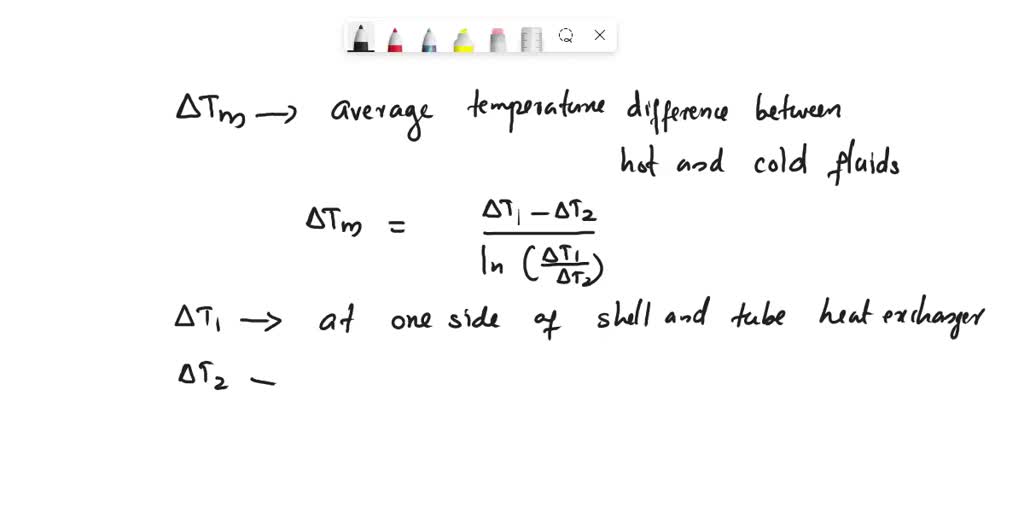 ΔTm → average temperature difference between
hot and cold fluids
ΔTm = ΔT1 − ΔT2 / ln (ΔT1/ΔT2)
ΔT1 → at one side of shell and tube heat exchanger
ΔT2 −